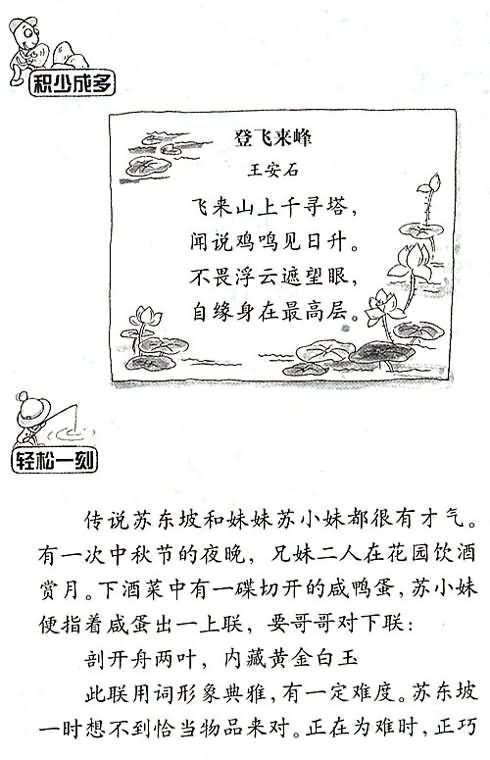 积少成多
登飞来峰
王安石
飞来山上千寻塔，
闻说鸡鸣见日升。
不畏浮云遮望眼，
自缘身在最高层。
轻松一刻
传说苏东坡和妹妹苏小妹都很有才气。
有一次中秋节的夜晚，兄妹二人在花园饮酒
赏月。下酒菜中有一碟切开的咸鸭蛋，苏小妹
便指着咸蛋出一上联，要哥哥对下联：
剖开舟两叶，内藏黄金白玉
此联用词形象典雅，有一定难度。苏东坡
一时想不到恰当物品来对。正在为难时，正巧